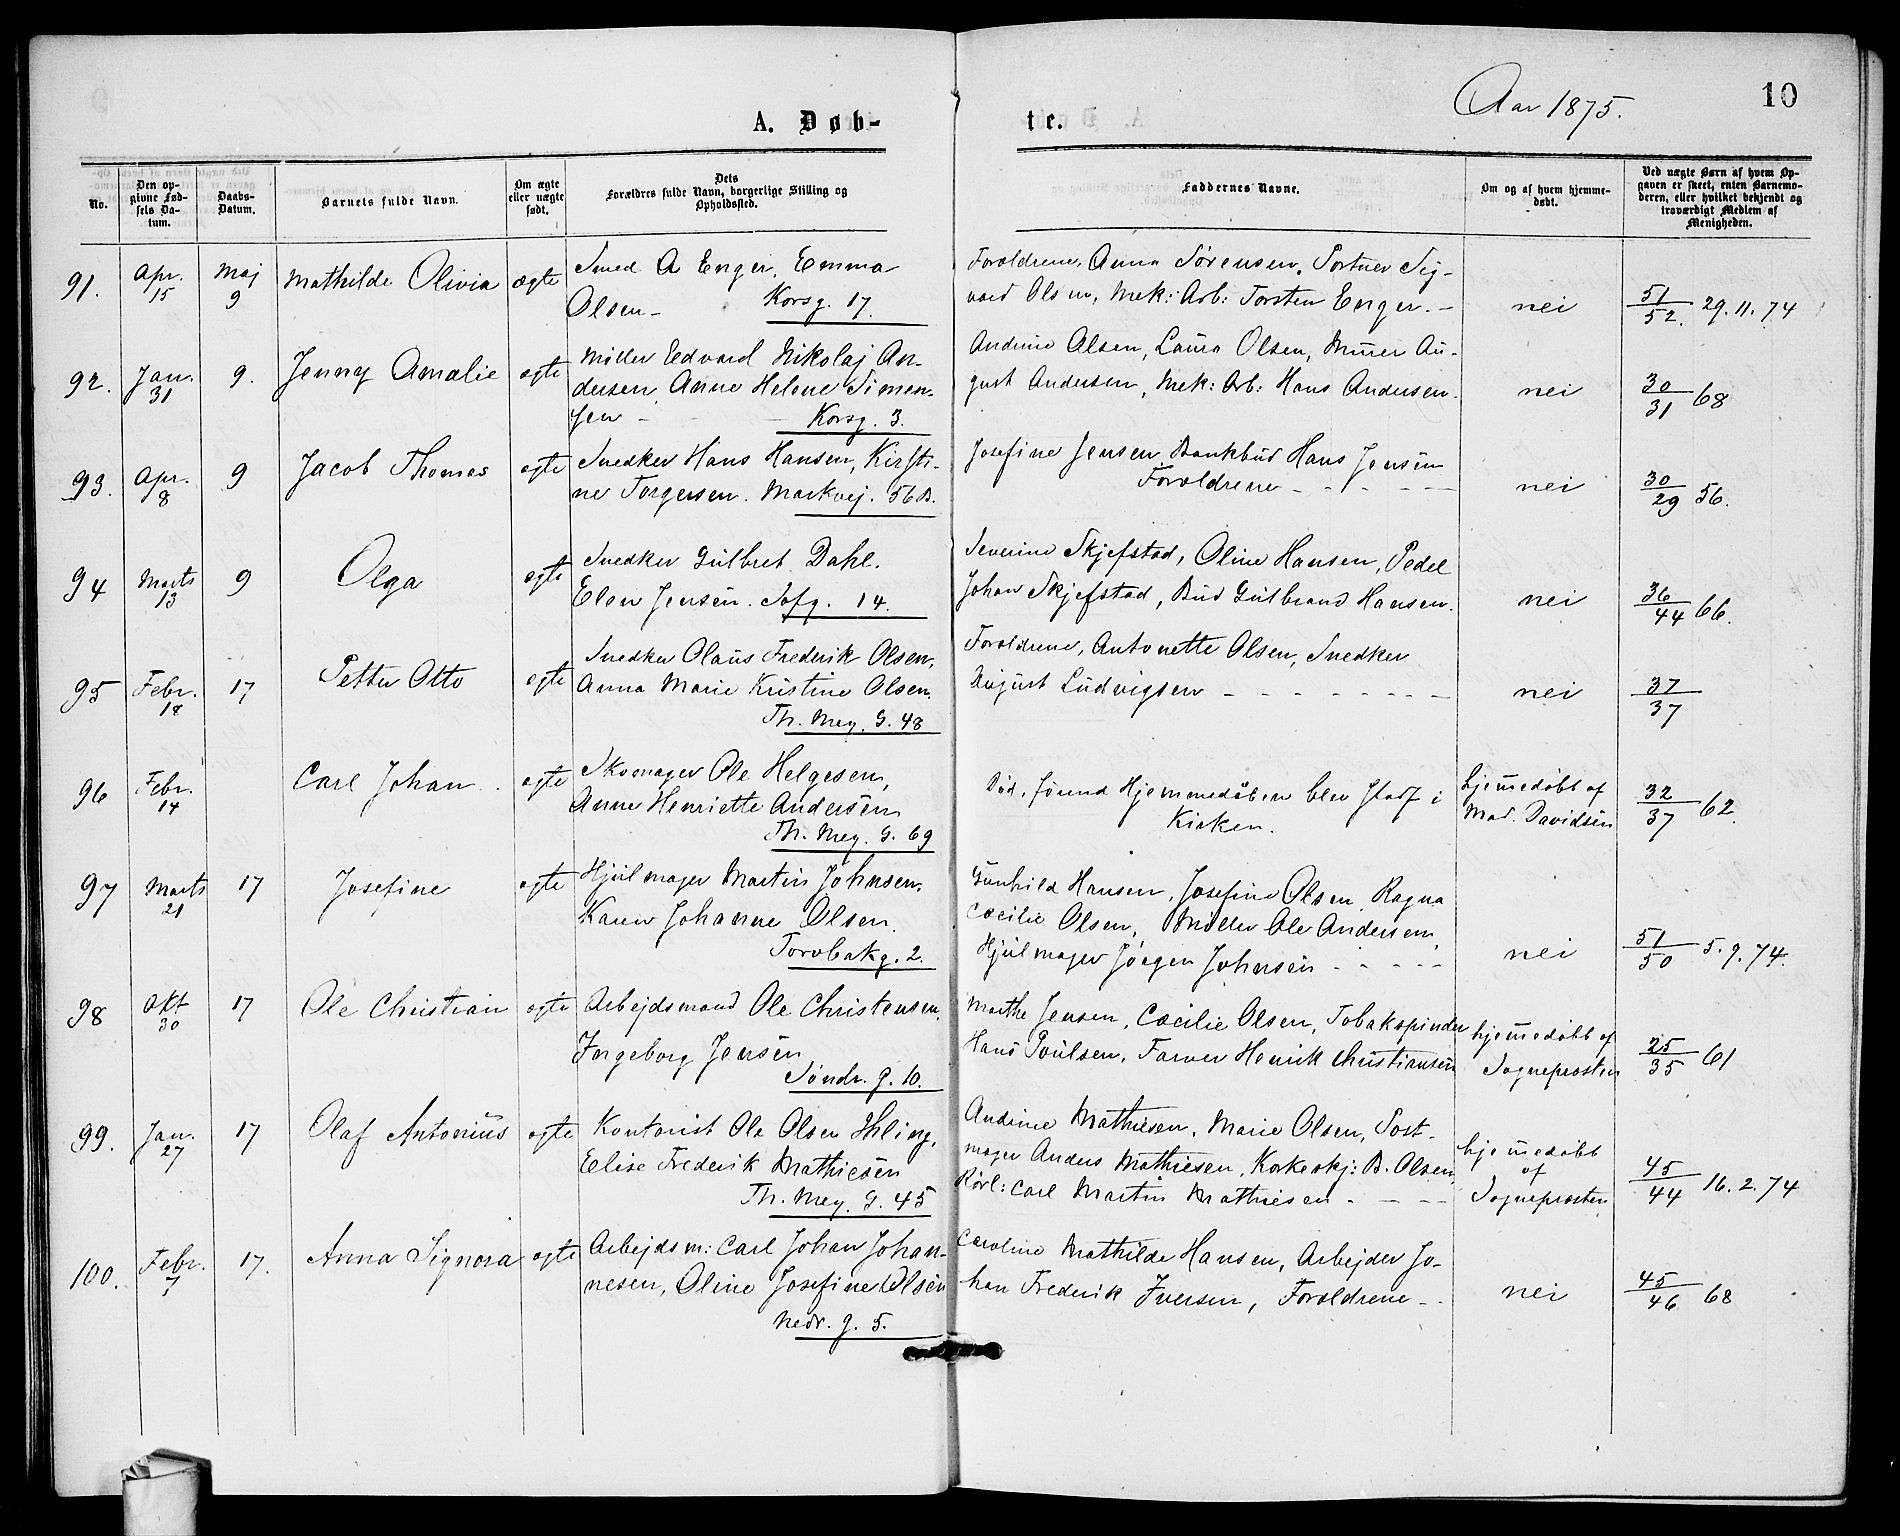 Aar 1875.
10
A. Døb-
te.
No.
Den op-
givne Fød-
sels Da-
tum.
Daabs-
Datum.
Barnets fulde Navn.
Om ægte
eller uægte
født.
Dets
Forældres fulde Navn, borgerlige Stilling og
Opholdssted.
Faddernes Navne.
Om og af hvem hjemme-
døbt.
Ved uægte Børn af hvem Op-
gaven er skeet, enten Barnemo-
deren, eller hvilket bekjendt og
troværdigt Medlem af
Menigheden.
91. Apr. 15 Maj 9 Mathilde Olivia ægte
Smed A Enger, Emma
Olsen - Korsg. 17.
Forældrene, Anna Sørensen, Portner Sig-
vard Olsen, Mek: Arb: Torsten Enger. -
nei
51/52. 29.11.74
92. Jan. 31 9. Jenny Amalie ægte
Møller Edvard Nikolaj An-
dersen, Anne Helene Simen-
sen - Korsg. 3.
Andrine Olsen, Laura Olsen, Murer Au-
gust Andersen, Mek: Arb: Hans Andersen.
nei
30/31 68
93. Apr. 8 9 Jacob Thomas ægte
Snedker Hans Hansen, Kirsti-
ne Torgersen. Markvej. 56B.
Josefine Jensen, Bankbud Hans Jensen
Forældrene - - - - -
nei
30/29 56.
94 Marts 13 9 Olga ægte
Snedker Gulbret Dahl.
Elen Jensen. Sofg. 14.
Severine Skjefstad, Oline Hansen, Pedel
Johan Skjefstad, Bud Gulbrand Hansen.
nei
36/44 66.
95 Febr. 18 17 Petter Otto ægte
Snedker Olaus Frederik Olsen,
Anna Marie Kristine Olsen.
Th. Mey. G. 48
Forældrene, Antonette Olsen, Snedker
August Ludvigsen - - - - - - -
nei
37/37
96 Febr. 14 Carl Johan ægte
Skomager Ole Helgesen,
Anne Henriette Andersen
Th. Mey. G. 69
Død, førend Hjemmedåben blev stadf i
Kirken.
hjemedøbt af
Mad. Davidsen
32/37 62.
97 Marts 21 17 Josefine ægte
Hjulmager Martin Johnsen,
Karen Johanne Olsen.
Torvbakg. 2.
Gunhild Hansen, Josefine Olsen, Ragna
Cæcilie Olsen, Møller Ole Andersen,
Hjulmager Jørgen Johnsen - - - - -
nei
51/50 5.9.74.
98 Okt 30 17 Ole Christian ægte
Arbejdsmand Ole Christensen,
Ingeborg Jensen
Søndr. g. 10.
Marthe Jensen, Cæcilie Olsen, Tobakspinder
Hans Poulsen, Farver Henrik Christiansen
hjemedøbt af
Sogneprosten
25/35 61
99. Jan. 27 17 Olaf Antonius ægte
Kontorist Ole Olsen
Elise Frederik Mathiesen
Th. Mey. G. 45
Andrine Mathiesen, Marie Olsen, Post-
mager Anders Mathiesen, Korkeskj: B. Olsen,
Rørl: Carl Martin Mathiesen - - -
hjemedøbt
af
Sogneprosten
45/44 16.2.74
100. Febr. 7 17. Anna Signora ægte
Arbejdsm: Carl Johan Johan-
nesen, Oline Josefine Olsen
Nedr. g. 5.
Caroline Mathilde Hansen, Arbejder Jo-
han Frederik Iversen, Forældrene - -
nei
45/46 68